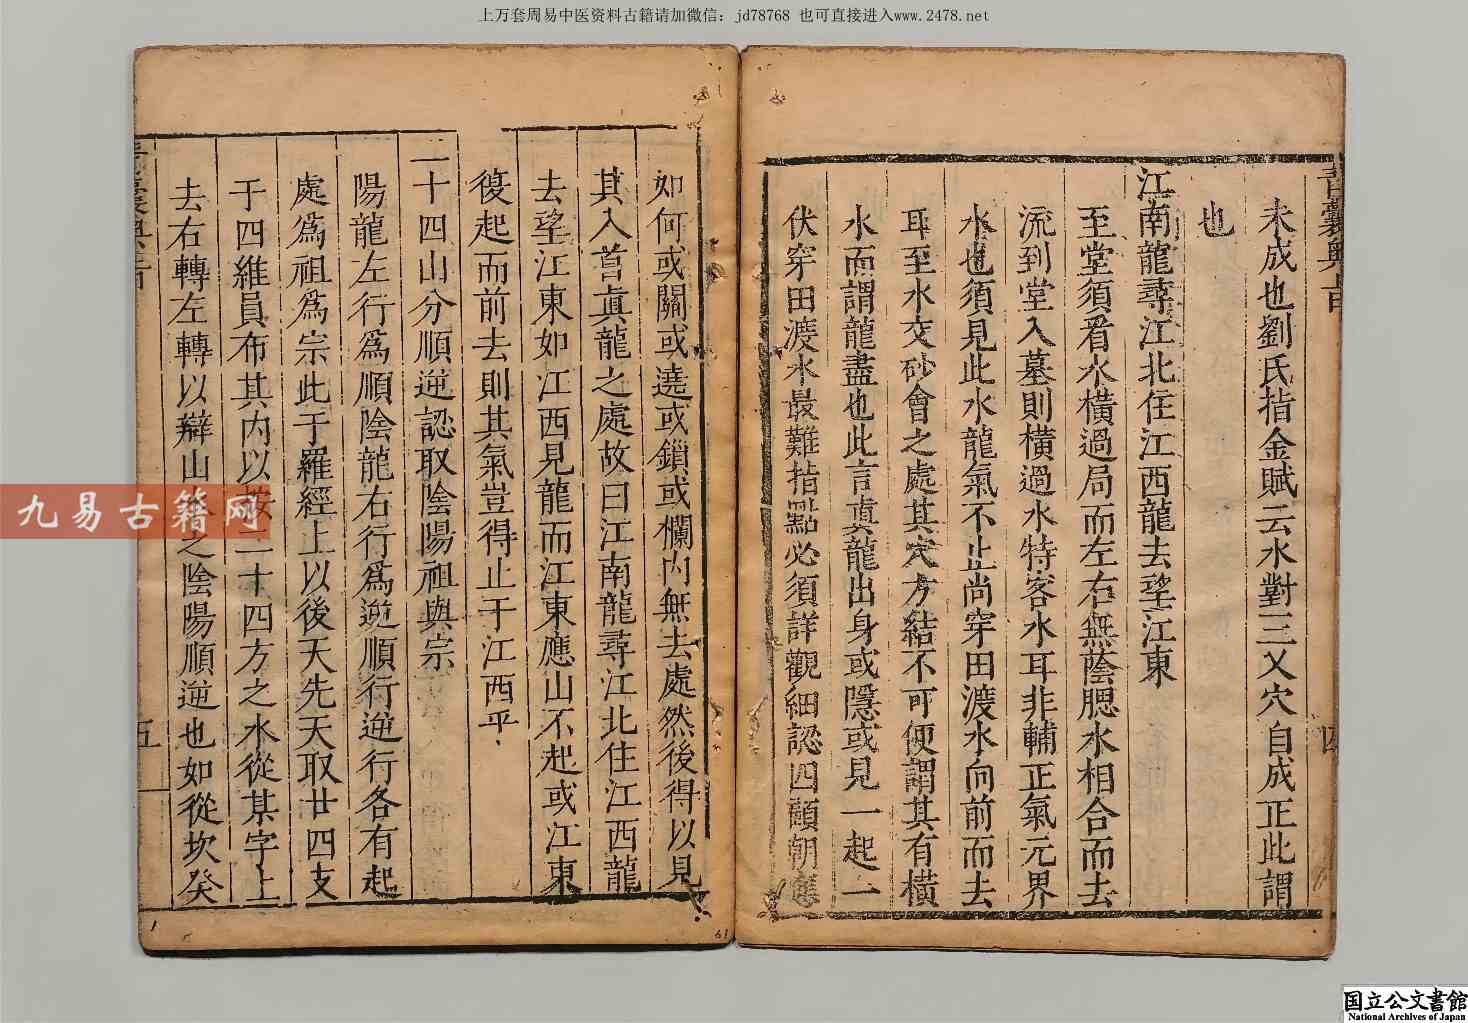 上万套周易中医资料古籍请加微信：jd78768 也可直接进入www.2478.net
青囊奧旨
未成也劉氏指金賦云水對三叉穴自成正此謂
也
江南龍尋江北住江西龍去望江東
至堂須看水橫過局而左右無蔭腮水相合而去
流到堂入墓則橫過水特客水耳非輔正氣元界
水也須見此水龍氣不止尚穿田渡水向前而去
耳至水交砂會之處其穴方結不可便謂其有橫
水而謂龍盡也此言眞龍出身或隱或見一起一
伏穿田渡水最難指點必須詳觀細認四顧朝應
四
如何或關或遶或鎖或欄内無去處然後得以見
其入首眞龍之處故曰江南龍尋江北住江西龍
去望江東如江西見龍而江東應山不起或江東
復起而前去則其氣豈得止于江西乎
二十四山分順逆認取陰陽祖與宗
陽龍左行爲順陰龍右行爲逆順行逆行各有起
處爲祖爲宗此于羅經上以後天先天取廿四支
于四維員布其内以二十四方之水從某字上
去右轉左轉以辯山之陰陽順逆也如從坎癸
五
九易古籍网
国立公文書館
National Archives of Japan